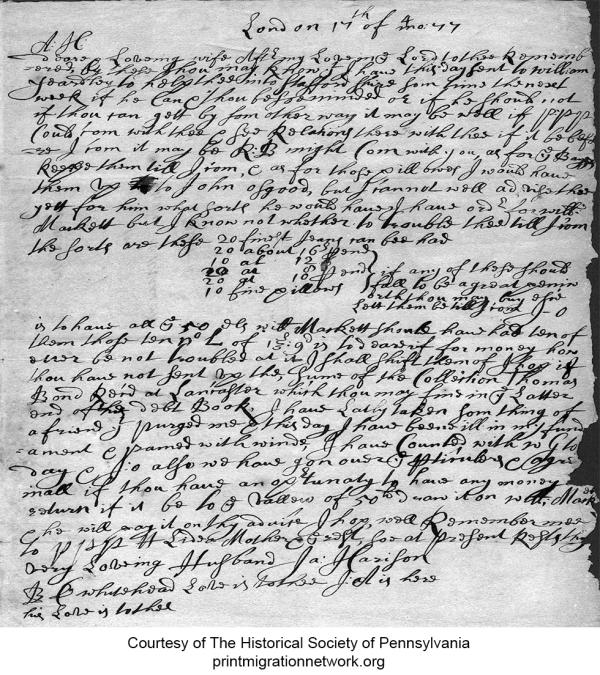 London 17th of 4 mo: 77
A: H
deare Loveing wife After my Love in ye Lord to thee Rememb
ered by these thou may know I have this day sent to william
yeardley to help thee into Stafford
week if he Can thou bee reminded or if he should not
if thou can gett by som other way it may be well if
Could Com with thee & see Relations there with thee if it be befo
re I com it may be R: B might Com with you, as for ye
Keepe them till I com, & as for those pillowes I would have
them to John osgood, but I cannot well advise thee
yett for him what sorts he would have I have ordr for will:
Markett but I know not whether to trouble thee till I com
the sorts are these 20 finest Jeans can bee had
20 about 16 pend
10 at 12
20 at 8 pend
20 at 10
10 fine pillows
if any of these should
fall to be a great penin
orth thou may buy else
lett them be till I com J O
is to have all ye 50 Markett should have had ten of
them those ten is to deare if for money how
ever be not troubled at it I shall shift them of
thou have not sent up the sume of the Collection Thomas
Bond Re'd at Lancaster which thou may fine in ye Latter
end of the debt Book, I have Laly taken somthing of
a friend purged me & this day I have beene ill in my fund
ament & pained with winde I have Counted with W G to
day & J: o also we have gon over ye & agre
in all if thou have an oportunaty to have any money
return if it be to ye vallew of 50 draw it on will: Markett
& he will pay it on thy advise I hope well Remember mee
to Mother & ye rest, soe at present Rests thy
very Loveing Husband Ja: Harison
B G whitehead Love is to thee J: A is here
his Love is to thee
Courtesy of The Historical Society of Pennsylvania
printmigrationnetwork.org